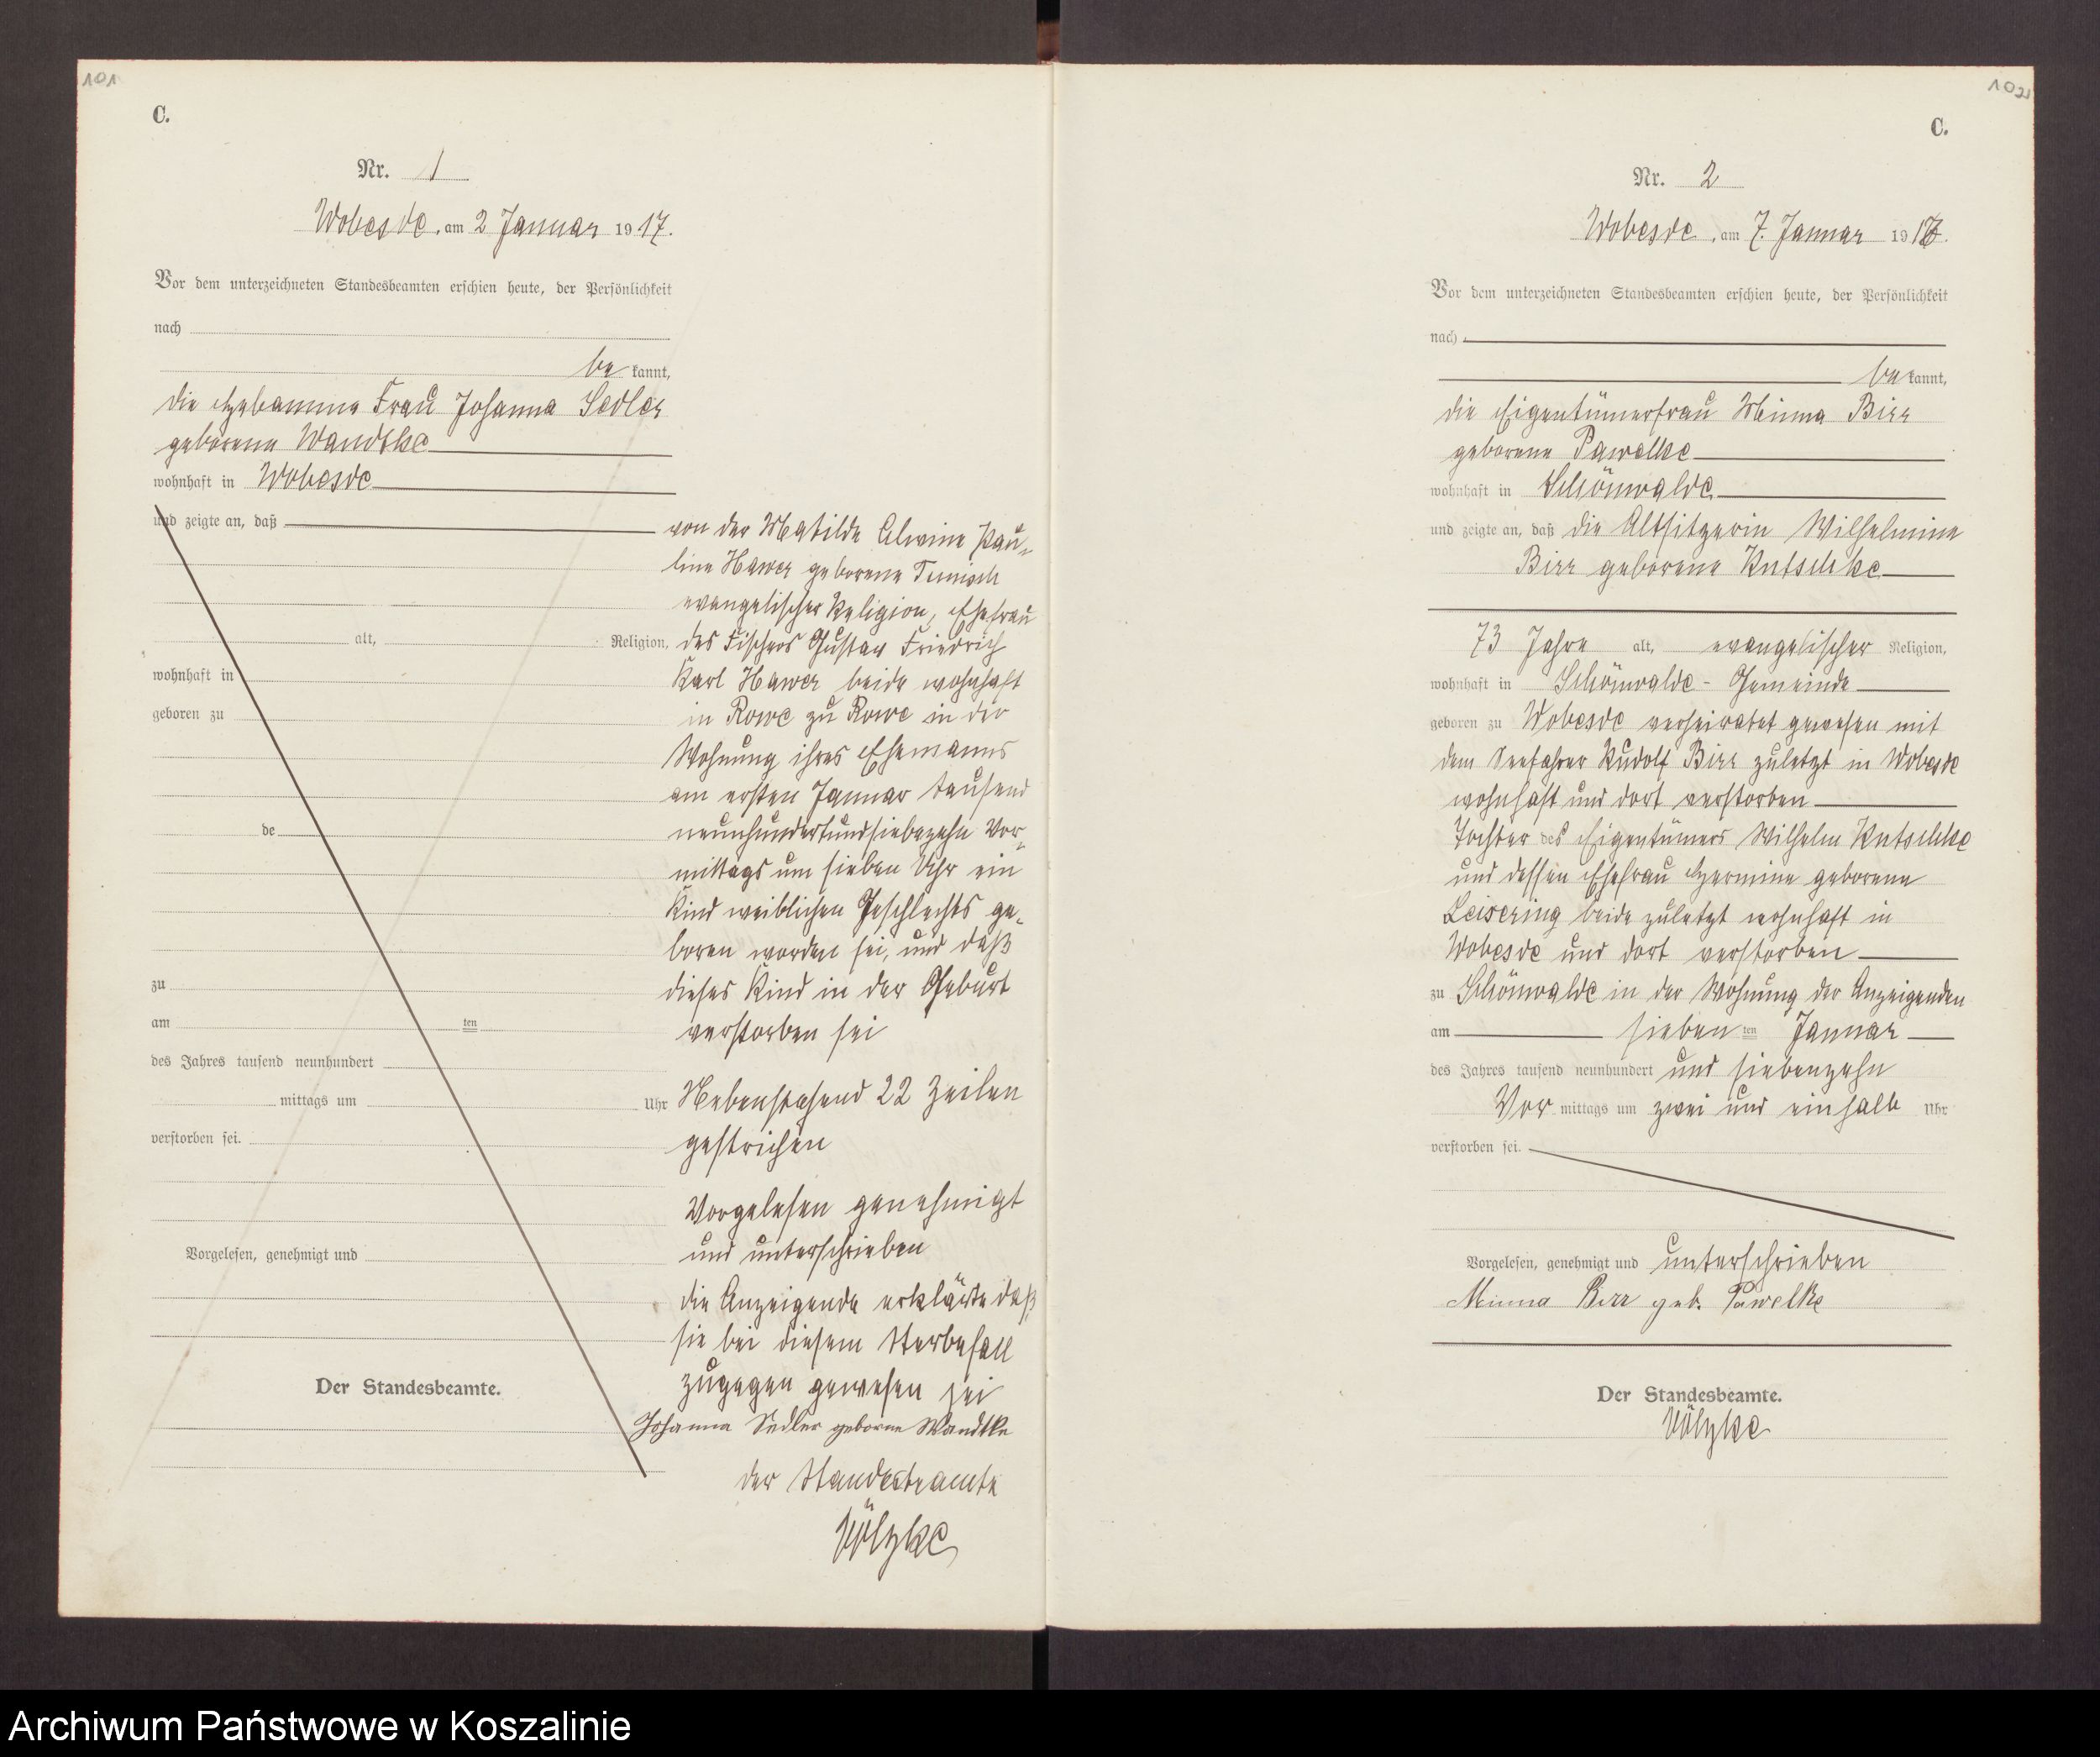 101
C.
Nr. 1
Wobesde, am 2 Januar 1917.
Vor dem unterzeichneten Standesbeamten erschien heute, der Persönlichkeit
nach
be kannt,
die Hebamme Frau Johanna Sedler
geborene Wandtke
wohnhaft in Wobesde
und zeigte an, daß
alt, Religion,
wohnhaft in
geboren zu
de
zu
am ten
des Jahres tausend neunhundert
mittags um Uhr
verstorben sei.
Vorgelesen, genehmigt und
Der Standesbeamte.
von der Matilde Alwine Pau-
line Hawer geborene
evangelischer Religion, Ehefrau
des Fischers Gustav Friedrich
Karl Hawer beide wohnhaft
in Rowe zu Rowe in der
Wohnung ihres Ehemanns
am ersten Januar tausend
neunhundertundsiebezehn Vor-
mittags um sieben Uhr ein
Kind weiblichen Geschlechts ge-
boren worden sei, und daß
dieses Kind in der Geburt
verstorben sei
Nebenstehend 22 Zeilen
gestrichen
Vorgelesen genehmigt
und unterschrieben
die Anzeigende erklärte daß
sie bei diesem Sterbefall
zugegen gewesen sei
Johanna Sedler geborne Wandtke
der Standesbeamte
Völzke
102
C.
Nr. 2
Wobesde, am 7. Januar 1917.
Vor dem unterzeichneten Standesbeamten erschien heute, der Persönlichkeit
nach
be kannt,
die Eigentümerfrau Minna Birr
geborene Pawelke
wohnhaft in Schönwalde
und zeigte an, daß die Altsitzerin Wilhelmine
Birr geborene Kutschke
73 Jahre alt, evangelischer Religion,
wohnhaft in Schönwalde - Gemeinde
geboren zu Wobesde verheiratet gewesen mit
dem Seefahrer Rudolf Birr zuletzt in Wobesde
wohnhaft und dort verstorben
Tochter des Eigentümers Wilhelm Kutschke
und dessen Ehefrau Hermine geborene
Leisering beide zuletzt wohnhaft in
Wobesde und dort verstorben
zu Schönwalde in der Wohnung der Anzeigenden
am sieben ten Januar
des Jahres tausend neunhundert und siebenzehn
Vor mittags um zwei und einhalb Uhr
verstorben sei.
Vorgelesen, genehmigt und unterschrieben
Minna Birr geb. Pawelke
Der Standesbeamte.
Völzke
Archiwum Państwowe w Koszalinie